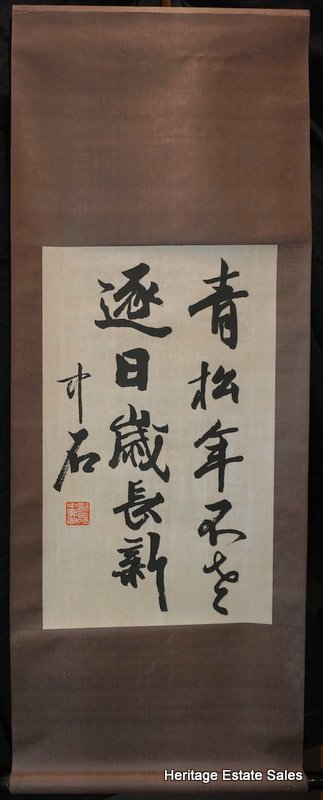 青松年不老
逐日歲長新
中石
Heritage Estate Sales